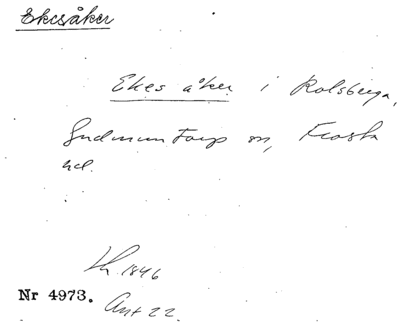 Ekesåker
Ekes åker i Rolsberga,
Gudmuntorp sn, Frosta
hd.
Lh. 1846
Nr 4973.
Ant 22